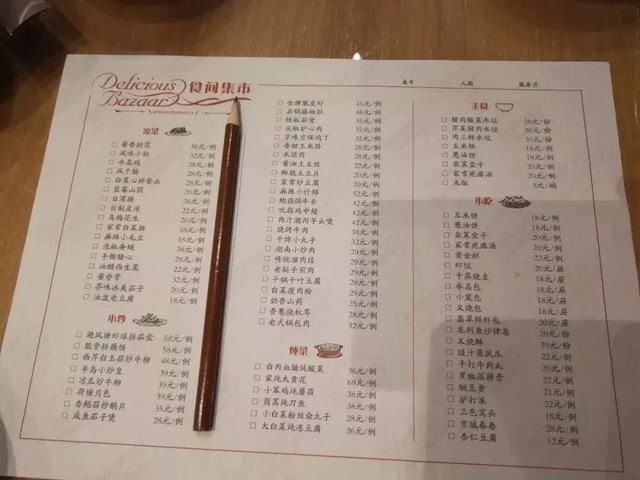 Delicious Bazaar
食间集市
桌号 人数 服务员
凉菜
酱香肘花 38元/例
风味小肚 32元/例
水晶鸡 28元/例
风干肠 28元/例
白菜心拌蛰头 28元/例
蓝莓山药 26元/例
白灌肠 26元/例
自制皮冻 22元/例
乌梅花生 20元/例
家常白菜拴 18元/例
麻辣小毛豆 18元/例
泡椒蚕蛹 38元/例
手撕猪心 28元/例
油醋西生菜 22元/例
酱脊骨 32元/例
茶味冰爽茄子 20元/例
油泼老豆腐 18元/例
小炒
避风塘虾球拼茄盒 58元/例
脆骨拼藕饼 58元/例
西芹白玉菇炒牛柳 48元/例
半岛小炒皇 39元/例
凉瓜炒牛柳 39元/例
荷塘月色 39元/例
香鲍菇炒鹅片 35元/例
咸鱼茄子煲 28元/例
金牌脆皮虾 45元/例
石锅藤椒肚 48元/例
铁板茄盒 35元/例
尖椒护心肉 32元/例
京味宫保鸡丁 32元/例
香甜玉米烙 28元/例
木须肉 28元/例
酱油土豆丝 22元/例
麻辣小什锦 52元/例
鲍菇焗牛舌 42元/例
吮指鸡中翅 42元/例
肉汁潮州芋头煲 42元/例
烧烤牛肉 38元/例
干炸小丸子 32元/例
湖南小炒肉 32元/例
传统溜肉段 28元/例
老挝子煎肉 28元/例
干锅千叶豆腐 28元/例
白菜瘦肉粉 28元/例
奶香山药 25元/例
香葱烧秋耳 28元/例
老式锅包肉 32元/例
炖菜
白肉血肠炖酸菜 36元/例
家炖大黄花 69元/例
小笨鸡炖蘑菇 38元/例
茼蒿炖刀鱼 38元/例
小白菜粉丝汆丸子 28元/例
大白菜炖冻豆腐 26元/例
主食
猪肉酸菜水饺 28元/份
芹菜猪肉水饺 28元/份
肉三鲜水饺 30元/份
玉米饼 18元/例
葱油饼 18元/例
韭菜盒子 20元/例
家常疙瘩汤 20元/例
米饭 3元/碗
小吃
玉米饼 18元/例
葱油饼 18元/例
韭菜盒子 20元/例
家常疙瘩汤 20元/例
黄金糕 22元/例
虾饺 20元/屉
干蒸烧麦 18元/屉
水晶包 18元/屉
小笼包 18元/屉
叉烧包 18元/屉
翡翠鲜虾包 20元/屉
龙利鱼沙律卷 20元/例
叉烧酥 20元/例
豉汁蒸凤爪 22元/例
手打牛肉丸 20元/例
黑椒蒸排骨 22元/例
豌豆黄 21元/例
驴打滚 22元/例
三色窝头 18元/例
京城春卷 28元/例
杏仁豆腐 12元/例